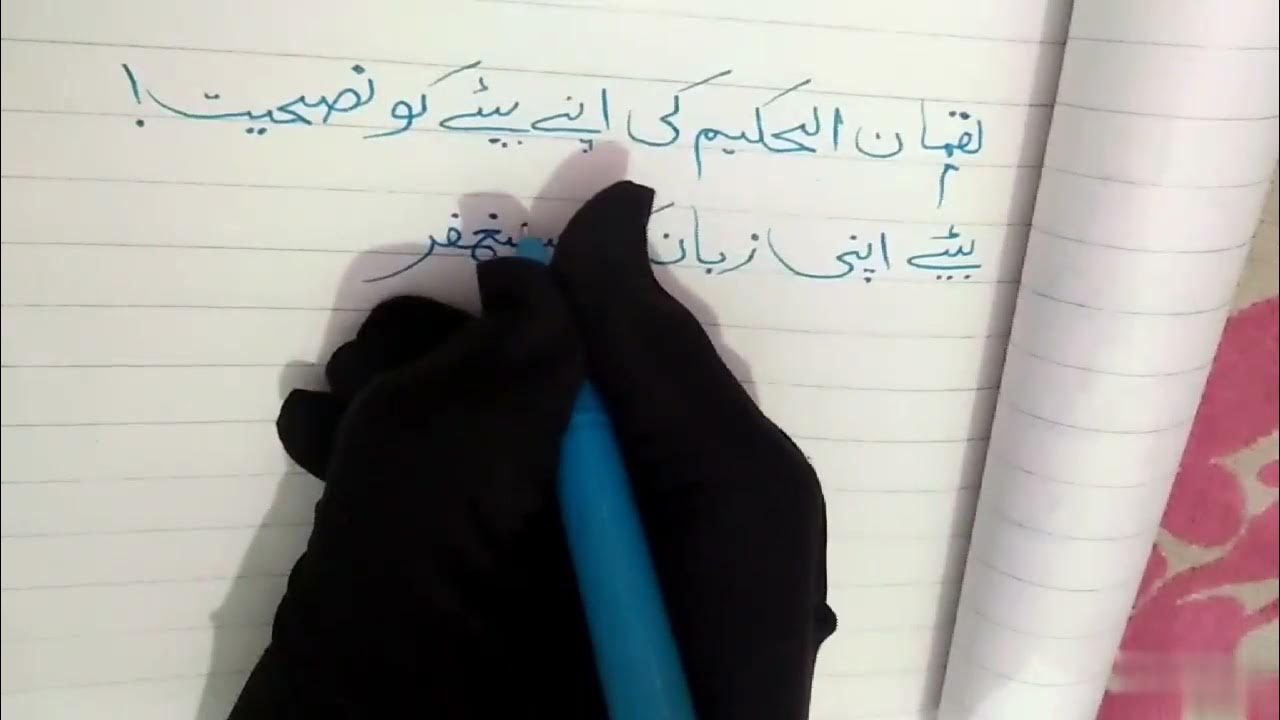 لقمان الحکیم کی اپنے بیٹے کو نصحیت!
بیٹے اپنی زبان